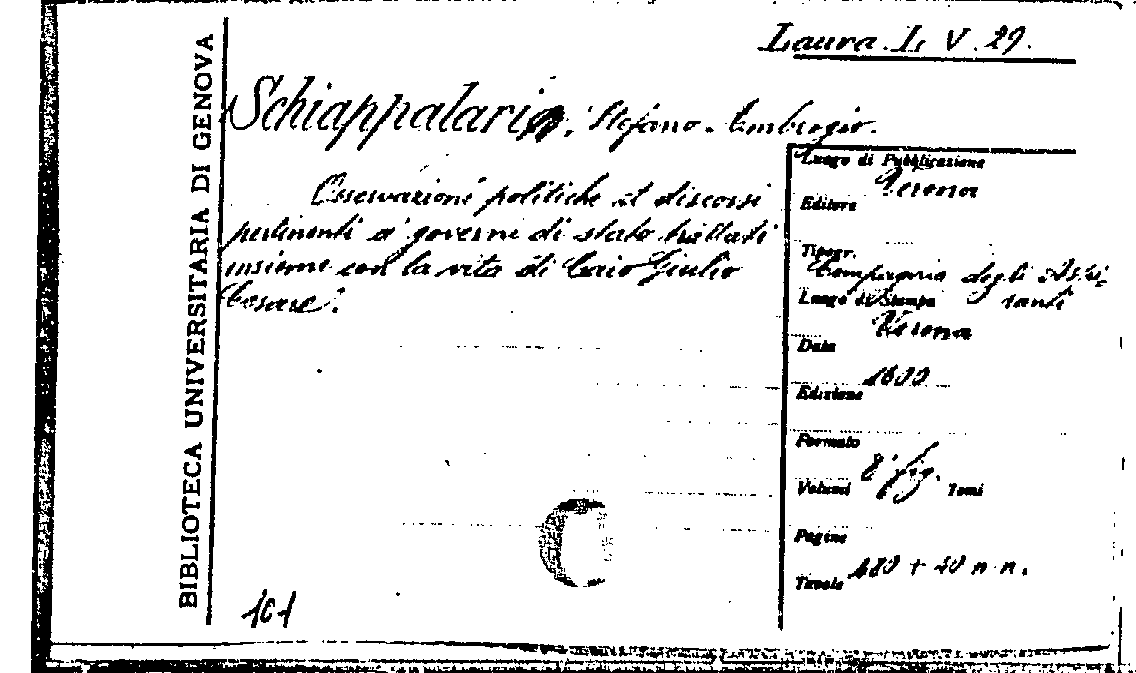 BIBLIOTECA UNIVERSITARIA DI GENOVA
Laura. L. V. 29.
Schiappalaria, Stefano. Ambrogio.
Osservazioni politiche et discorsi
pertinenti a' governi di stato trattati
insieme con la vita di Caio Giulio
Cesare.
Luogo di Pubblicazione
Verona
Editore
Tipogr.
Compagnia degli Aspi-
ranti
Luogo di Stampa
Verona
Data
1600
Edizione
Formato
8° fig.
Volumi Tomi
Pagine
480 + 40 n. n.
Tavole
101